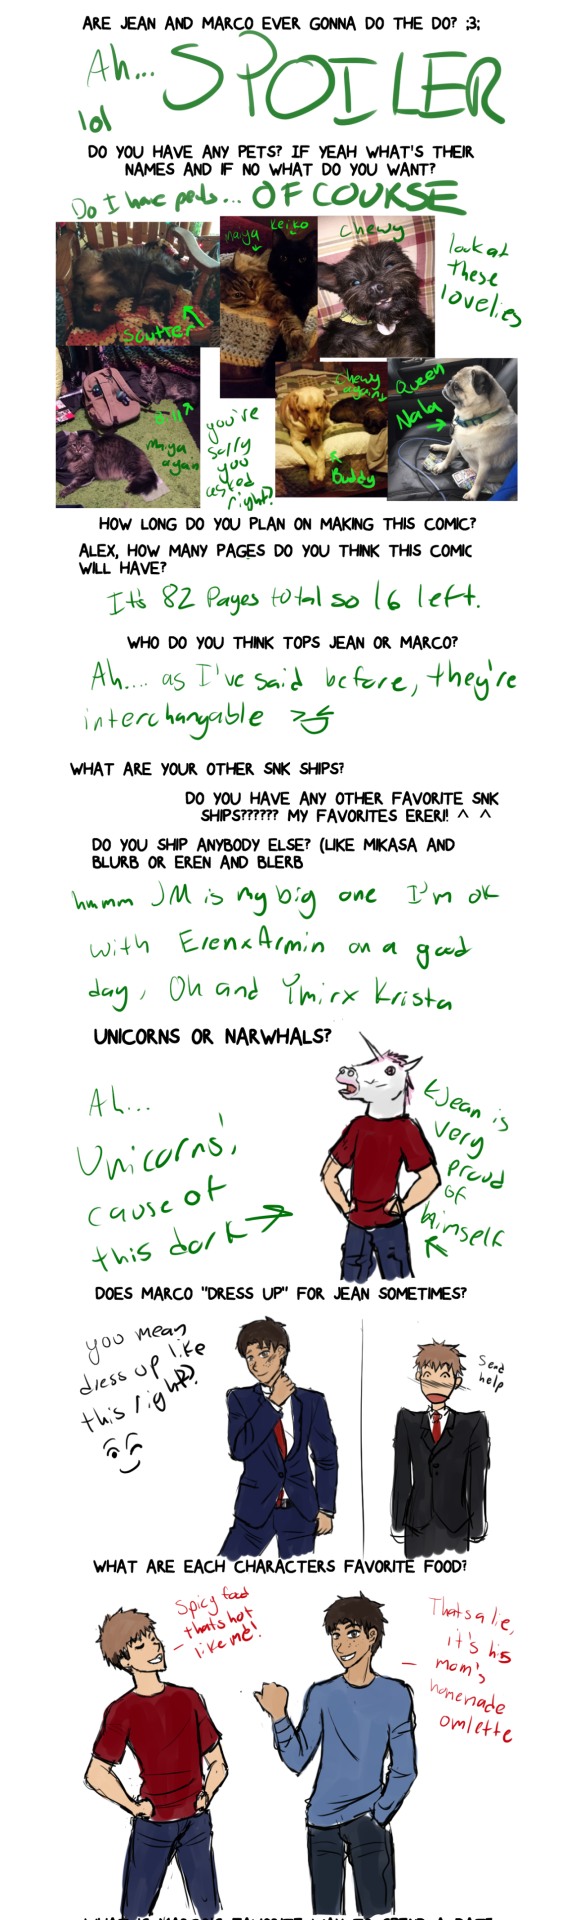 ARE JEAN AND MARCO EVER GONNA DO THE DO? ;3;
Ah... SPOILER
lol
DO YOU HAVE ANY PETS? IF YEAH WHAT'S THEIR
NAMES AND IF NO WHAT DO YOU WANT?
Do I have pets... OF COURSE
Scutter
maiya
Keiko
chewy
look at
these
lovelies
Maiya
again
you're
sally
you
asked
right?
chewy
again
Buddy
Queen
Nala
HOW LONG DO YOU PLAN ON MAKING THIS COMIC?
ALEX, HOW MANY PAGES DO YOU THINK THIS COMIC
WILL HAVE?
It's 82 Pages total so 16 left.
WHO DO YOU THINK TOPS JEAN OR MARCO?
Ah.... as I've said before, they're
interchangable
WHAT ARE YOUR OTHER SNK SHIPS?
DO YOU HAVE ANY OTHER FAVORITE SNK
SHIPS?????? MY FAVORITES ERERI! ^ ^
DO YOU SHIP ANYBODY ELSE? (LIKE MIKASA AND
BLURB OR EREN AND BLERB
hmmm JM is my big one I'm ok
with ErenxArmin on a good
day, Oh and Ymirx Krista
UNICORNS OR NARWHALS?
Ah...
Unicorns,
cause of
this dork
Jean is
very
proud
of
himself
DOES MARCO "DRESS UP" FOR JEAN SOMETIMES?
you mean
dress up like
this right?
Send
help
WHAT ARE EACH CHARACTERS FAVORITE FOOD?
Spicy food
thats hot
like me!
Thats a lie,
it's his
mom's
homemade
omlette